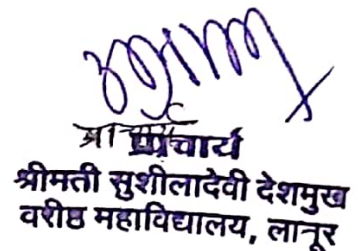 प्राचार्य
श्रीमती सुशीलादेवी देशमुख
वरीष्ठ महाविद्यालय, लातूर